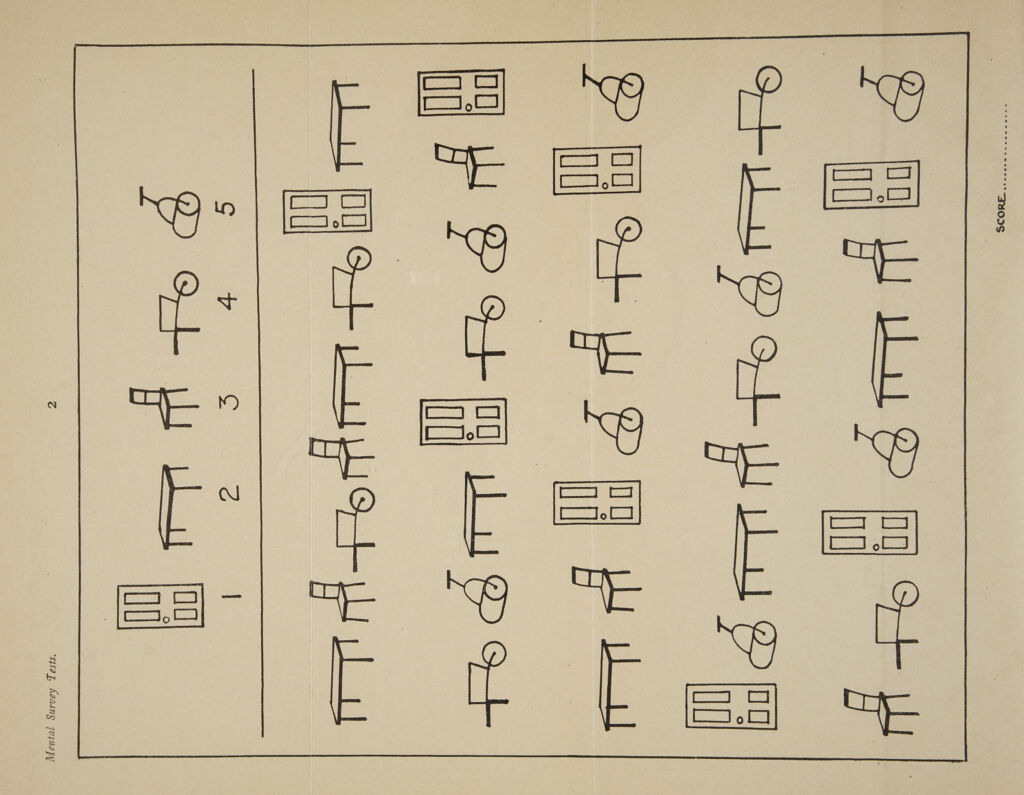 Mental Survey Tests.
2
1 2 3 4 5
SCORE..................